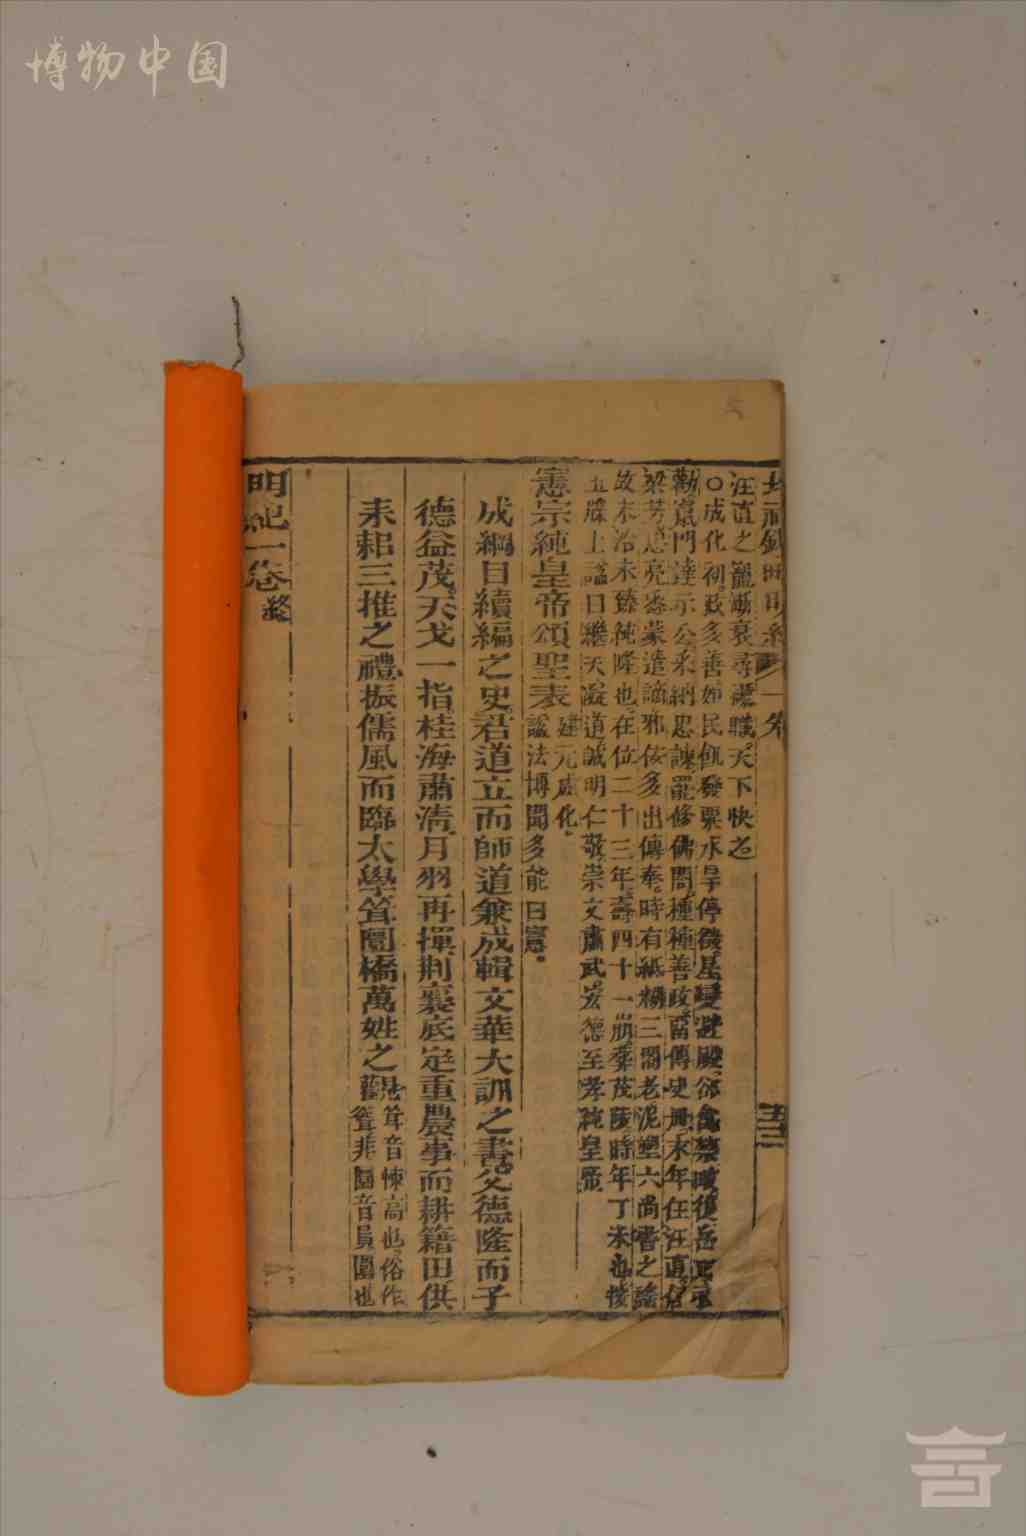 博物中国
明紀
一卷
五三
汪直之寵漸衰尋罷職天下快之
○成化初政多善如民飢發粟水旱停徵星變避殿
門達示公采納忠諫罷修佛閣種種善政書傳史冊末年任汪直
梁芳忠亮悉蒙遣謫邪佞多出傳奉時有紙糊三閣老泥塑六尚書之謠
故末治未臻純隆也在位二十三年壽四十一崩葬茂陵時年丁未也
上諡曰繼天凝道誠明仁敬崇文肅武宏德至孝純皇帝
憲宗純皇帝頌聖表
建元成化
諡法博聞多能曰憲
成綱目續編之史君道立而師道兼成輯文華大訓之書父德隆而子
德益茂天戈一指桂海肅清月羽再揮荆襄底定重農事而耕籍田供
耒耜三推之禮振儒風而臨太學聳圜橋萬姓之觀
聳音悚高也俗作
非圜音員圓也
明紀一卷終